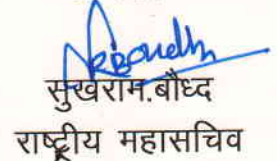 सुखराम.बौध्द
राष्ट्रीय महासचिव